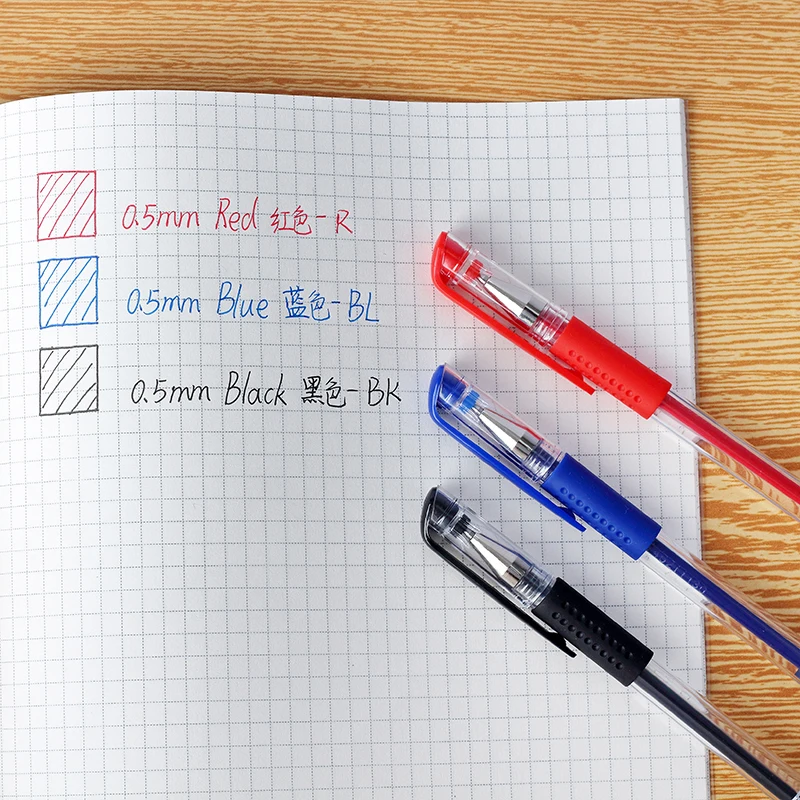 0.5mm Red 红色-R
0.5mm Blue 蓝色-BL
0.5mm Black 黑色-BK